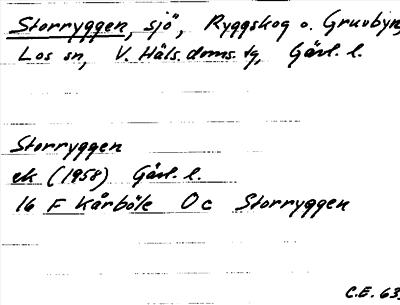 Storryggen, sjö, Ryggskog o. Gruvbyn,
Los sn, V. Häls. doms. tg, Gävl. l.
Storryggen
ek (1958) Gävl. l.
16 F Kårböle O c Storryggen
C.E. 63.